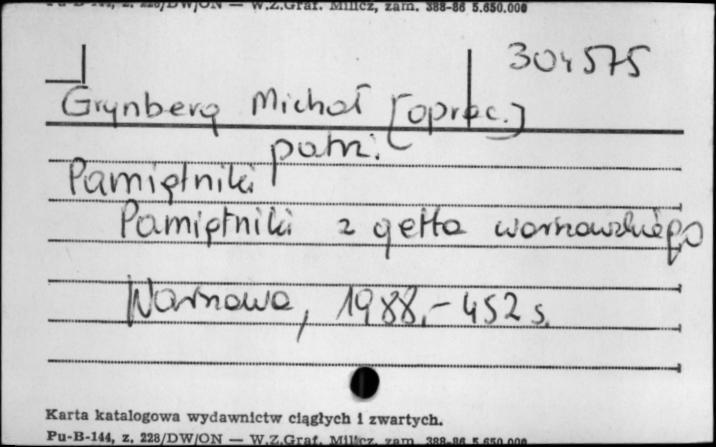 Pu-B-144, z. 228/DW/ON — W.Z.Graf. Milicz, zam. 388-86 5.650.000
304575
Grynberg Michał [oprac.]
patrz:
Pamiętniki
Pamiętniki z getta warszawskiego
Warszawa, 1988.- 452 s.
Karta katalogowa wydawnictw ciągłych i zwartych.
Pu-B-144, z. 228/DW/ON — W.Z.Graf. Milicz, zam. 388-86 5.650.000